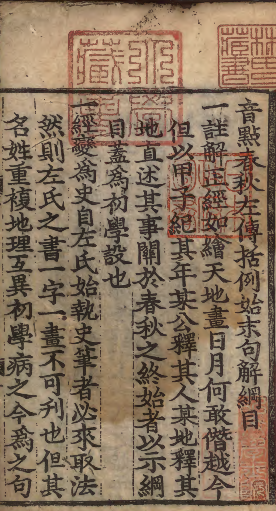 音點春秋左傳括例始末句解綱目
一註解正經如繪天地畫日月何敢僭越今
但以甲子紀其年某公釋其人某地釋其
地直述其事關於春秋之終始者以示綱
目蓋為初學設也
一經變為史自左氏始執史筆者必來取法
然則左氏之書一字一畫不可刋也但其
名姓重複地理互異初學病之今為之句